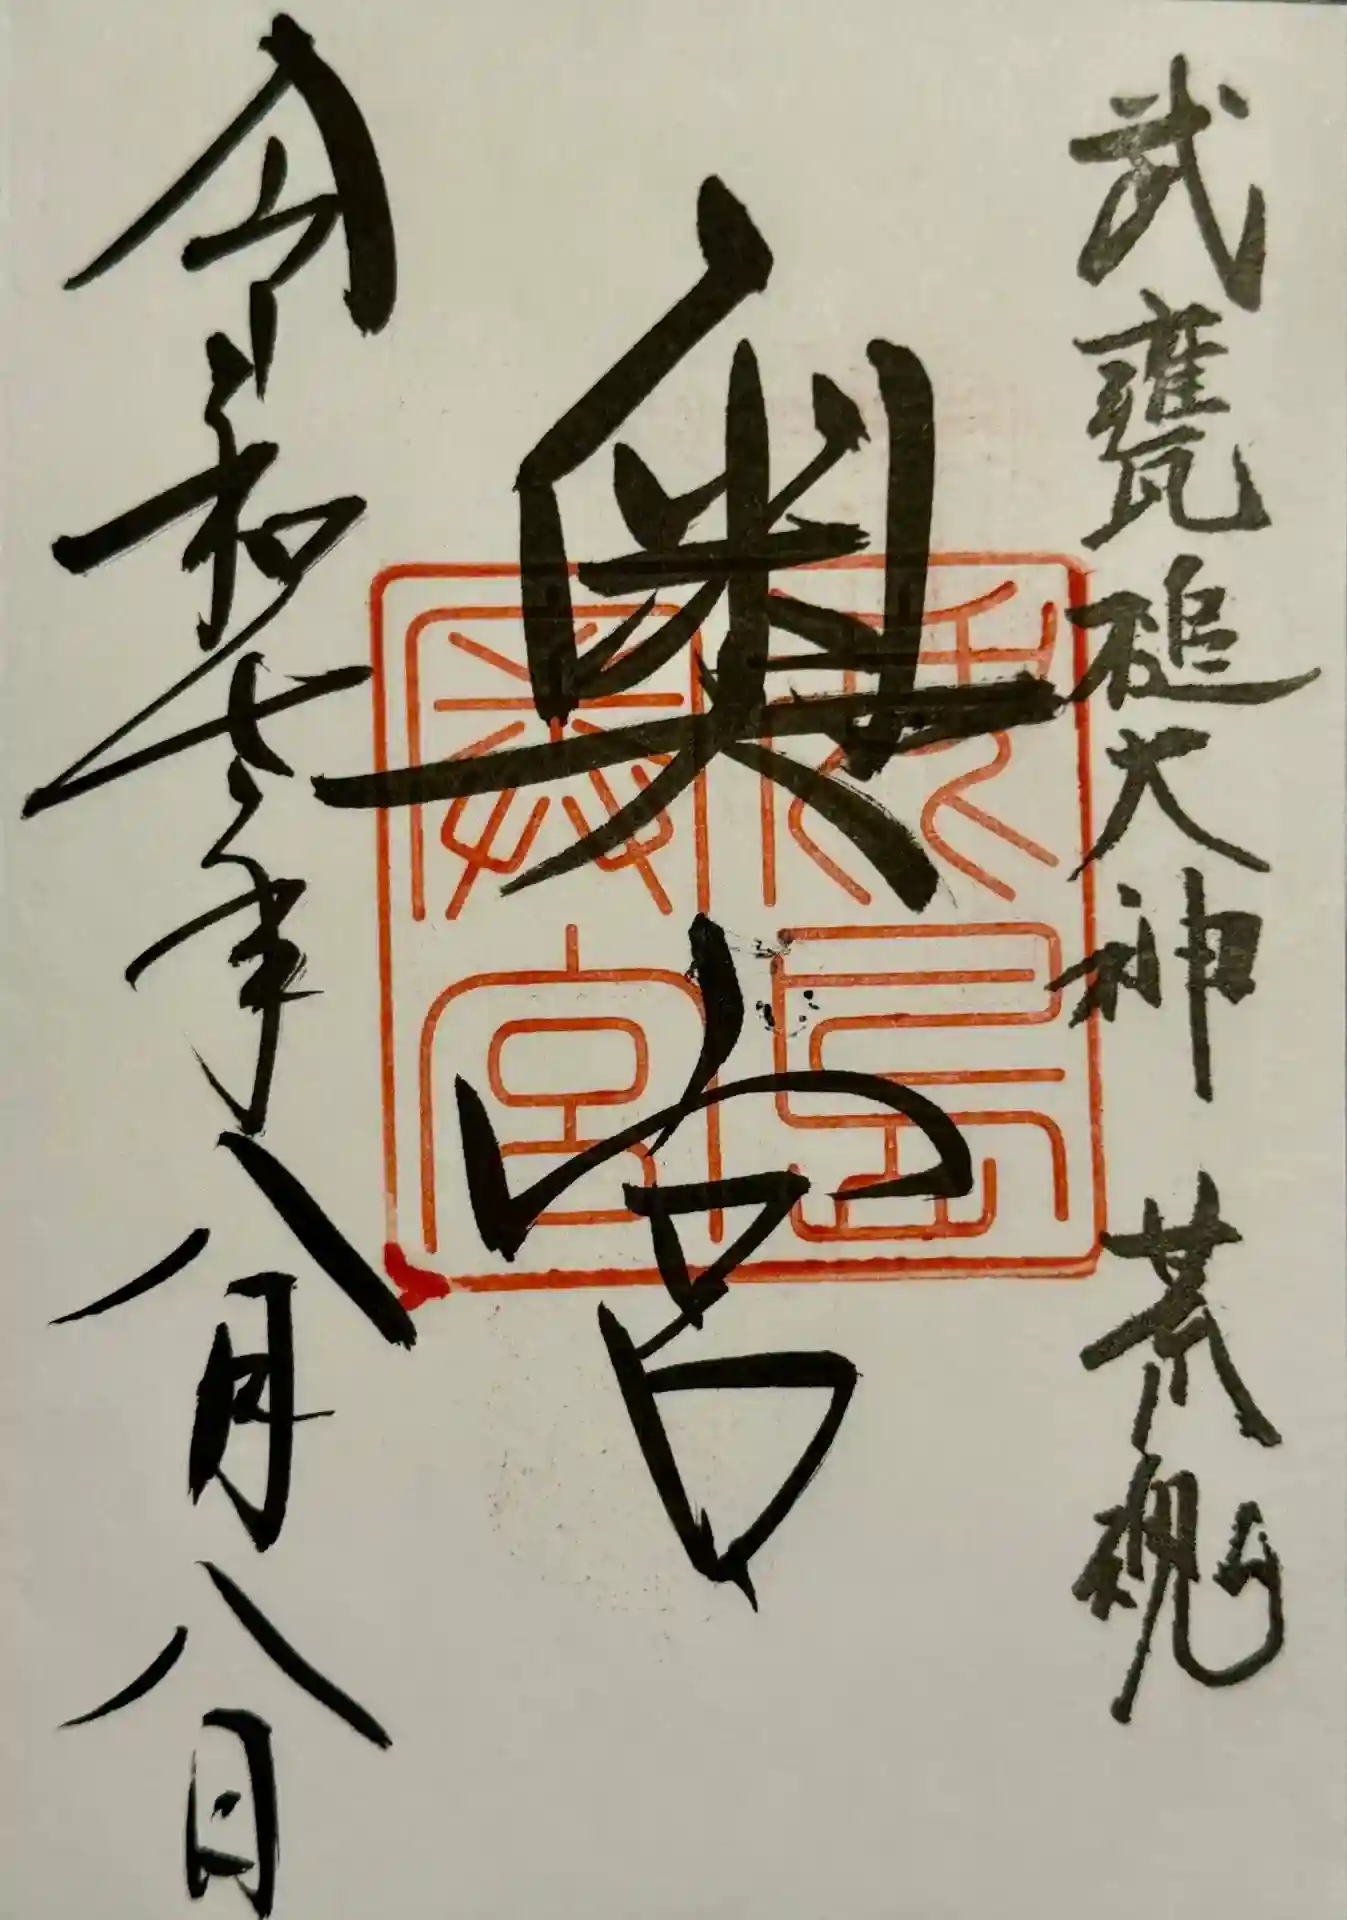 武甕槌大神 荒魂
奥宮
鹿島奥宮
令和七年八月八日